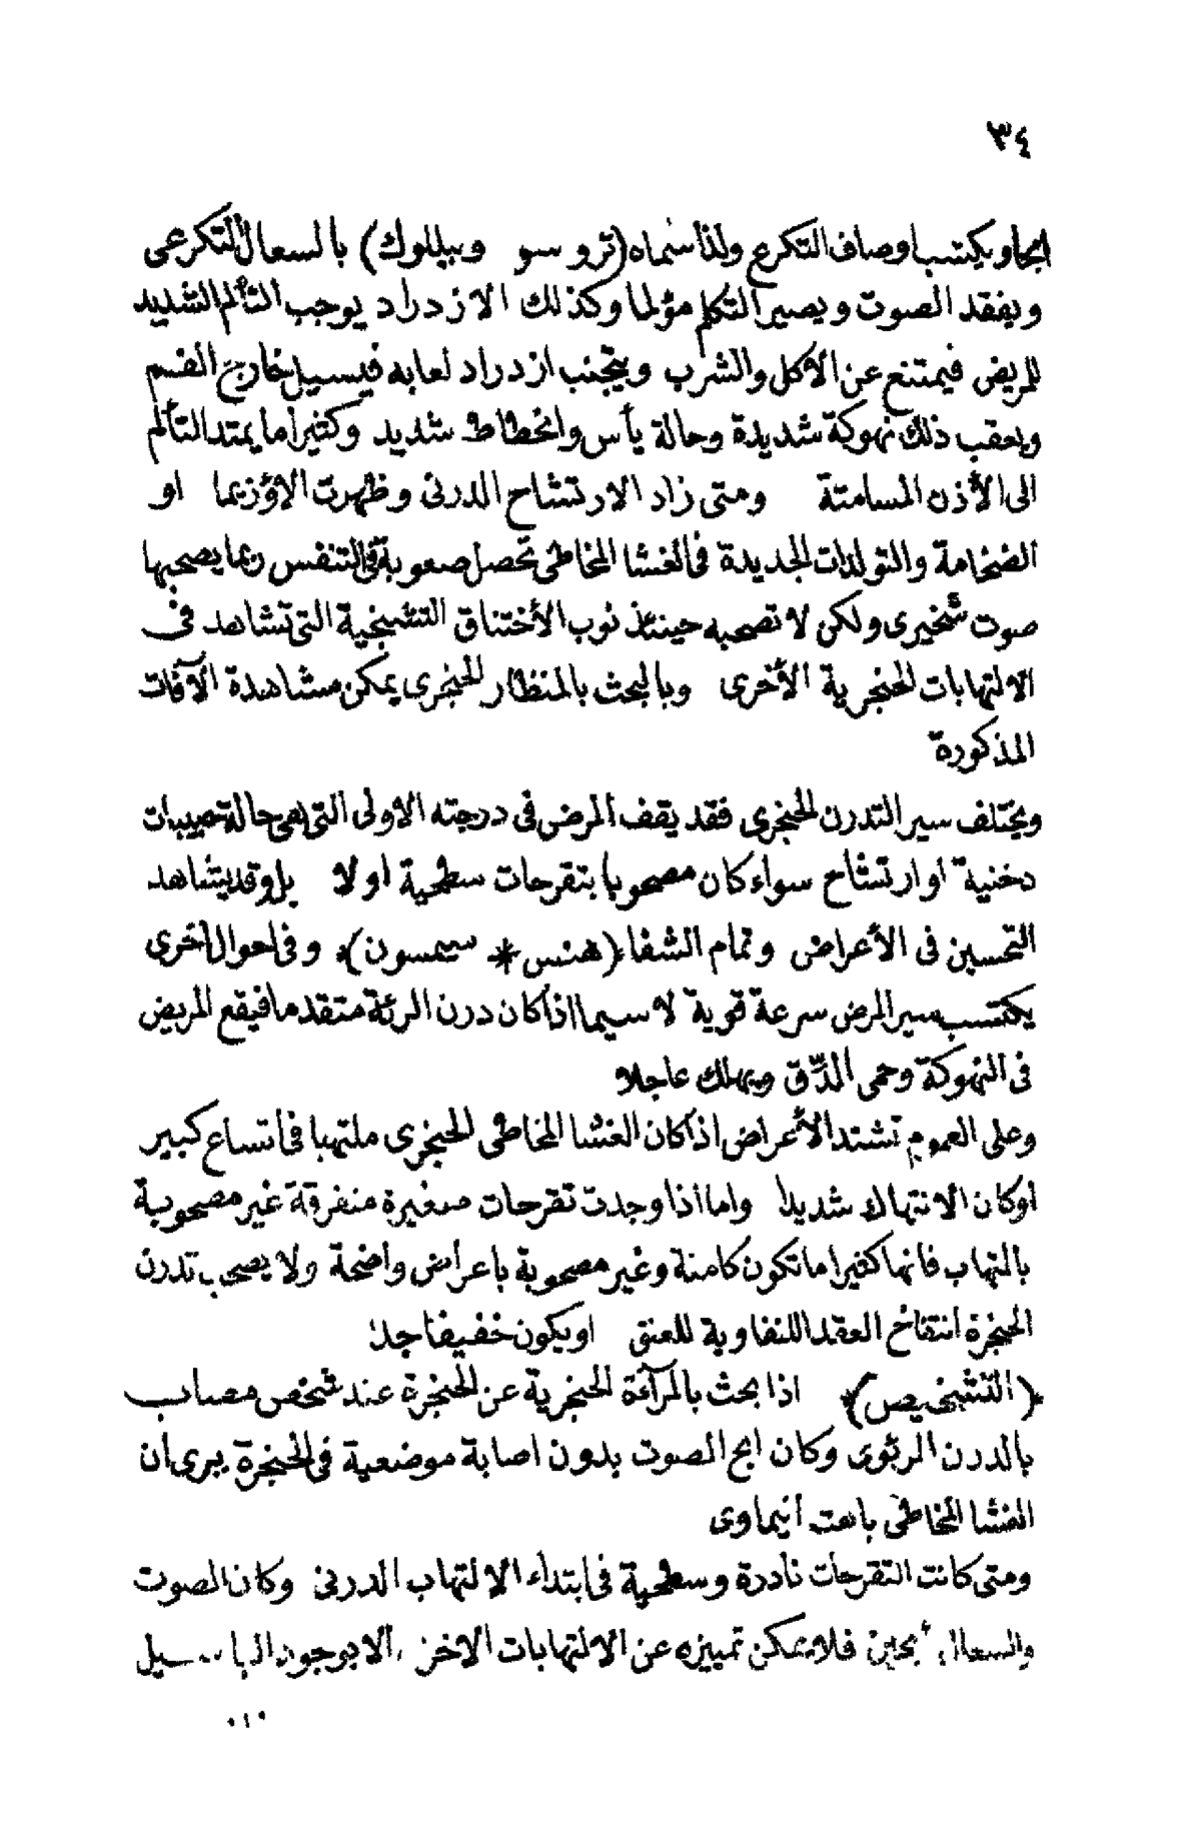 ٣٤
ابحا ويكتسب اوصاف التكرع ولذا سماه (تروسو وبيللوك) بالسعال التكرعى
ويفقد الصوت ويصير التكلم مؤلما وكذلك الازدراد يوجب التألم الشديد
للريض فيمتنع عن الأكل والشرب ويتجنب ازدراد لعابه فيسيل خارج الفم
ويعقب ذلك نهوكة شديدة وحالة يأس وانحطاط شديد وكثيرا ما يمتد التألم
الى الأذن المسامتة ومتى زاد الارتشاح الدرنى وظهرت الاؤزيما او
الضخامة والتولدات الجديدة فى الغشا المخاطى تحصل صعوبة فى التنفس ربما يصحبها
صوت شخيرى ولكن لا تصحبه حينئذ نوب الأختناق التشنجية التى تشاهد فى
الالتهابات الحنجرية الأخرى وبالبحث بالمنظار الحنجرى يمكن مشاهدة الآفات
المذكورة
ويختلف سير التدرن الحنجرى فقد يقف المرض فى درجته الاولى التى هى حالة حبيبات
دخنية او ارتشاح سواء كان مصحوبا بتقرحات سطحية او لا بل وقد يشاهد
التحسين فى الأعراض وتمام الشفا (هنس * سيمسون) وفى احوال أخرى
يكتسب سير المرض سرعة قوية لاسيما اذا كان درن الرئة متقدما فيقع المريض
فى النهوكة وحمى الدّق ويهلك عاجلا
وعلى العموم تشتد الأعراض اذا كان الغشا المخاطى الحنجرى ملتهبا فى اتساع كبير
اوكان الانتهاك شديدا واما اذا وجدت تقرحات صغيرة منفرقة غير مصحوبة
بالتهاب فانها كثيرا ما تكون كامنة وغير مصحوبة باعراض واضحة ولا يصحب تدرن
الحنجرة انتفاخ العقد اللنفاوية للعنق او يكون خفيفا جدا
(التشخيص) اذا بحث بالمرآة الحنجرية عن الحنجرة عند شخص مصاب
بالدرن الرئوى وكان ابح الصوت بدون اصابة موضعية فى الحنجرة يرى ان
الغشا المخاطى باهت أنيماوى
ومتى كانت التقرحات نادرة وسطحية فى ابتداء الالتهاب الدرنى وكان الصوت
والسعال أبحين فلا يمكن تمييزه عن الالتهابات الاخر الا بوجود الباسيل